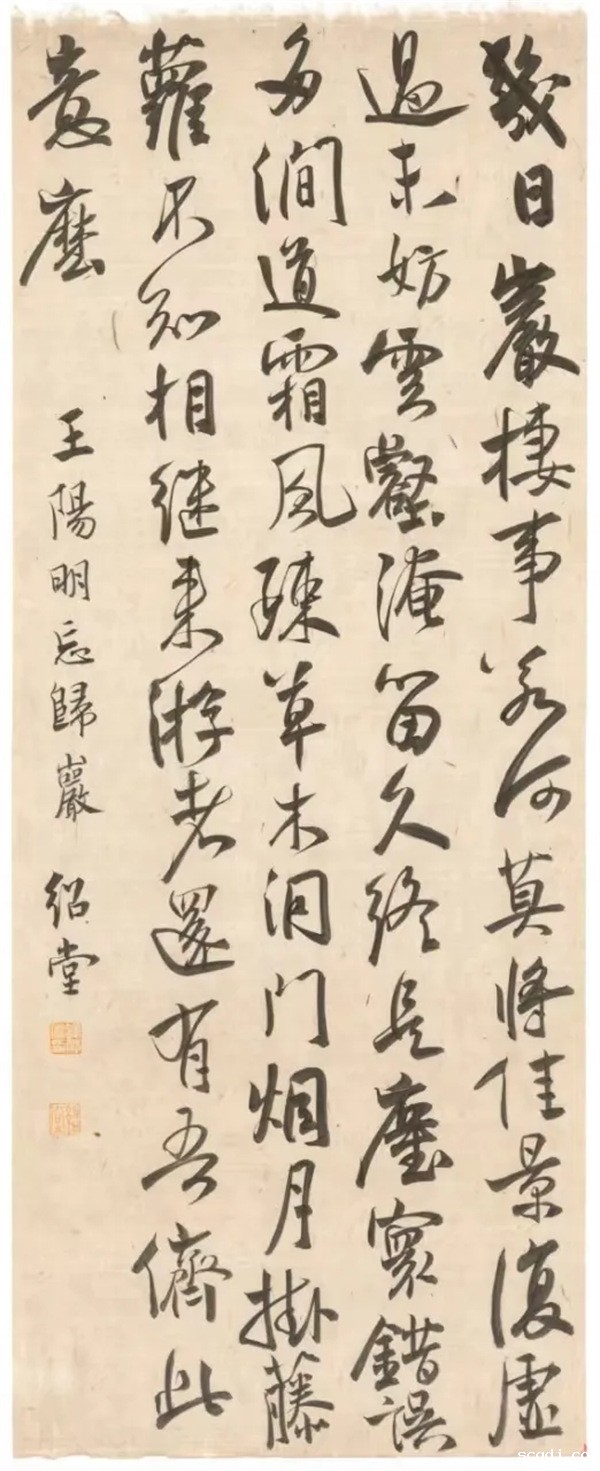 幾日巖棲事若何莫將佳景復虛
過未妨雲壑淹留久終是塵寰錯誤
多澗道霜風疎草木洞門烟月掛藤
蘿不知相继来游者還有吾儕此
意麼
王陽明忘歸巖 紹堂